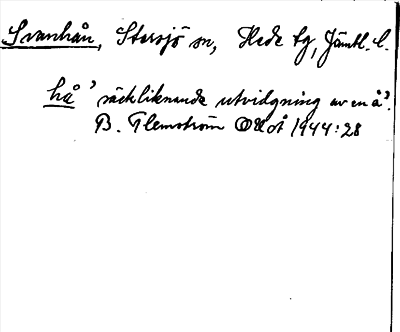 Svanhån, Storsjö sn, Hede tg, Jämtl. l.
hå 'säckliknande utvidgning av en å'.
B. Flemström OUoÅ 1944:28